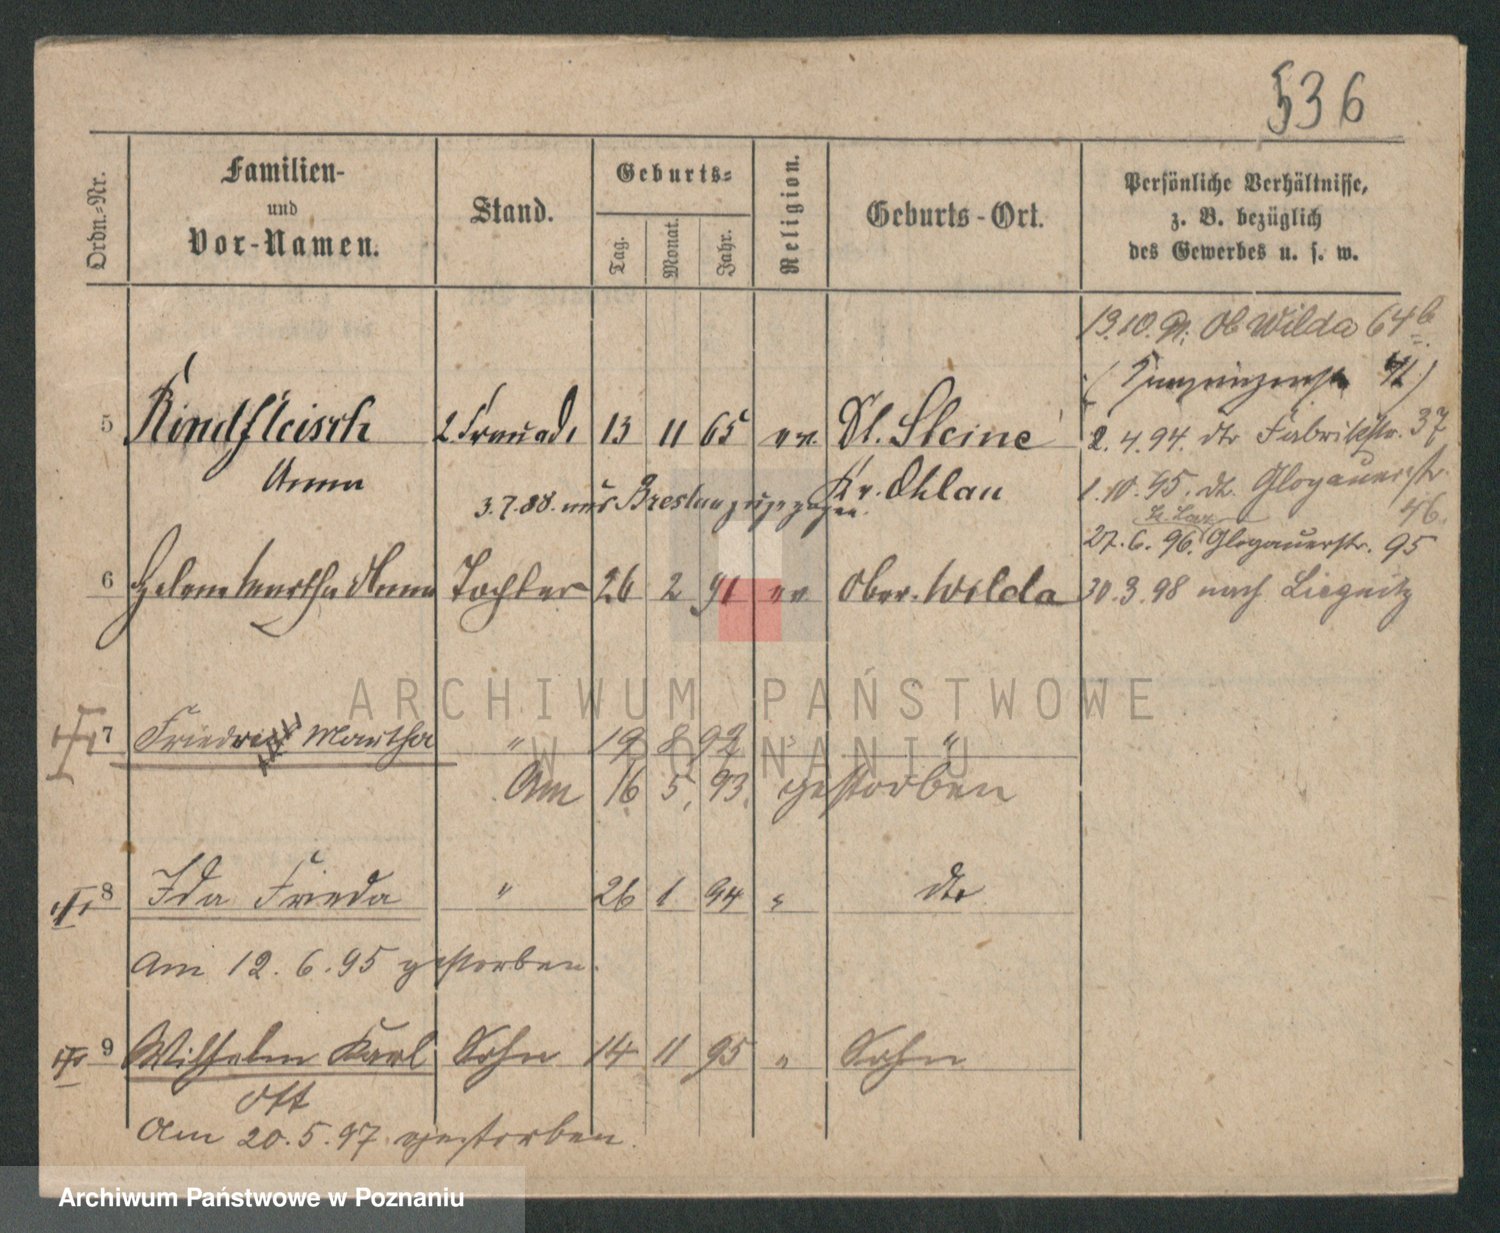 536
Ordn.-Nr.
Familien-
und
Vor-Namen.
Stand.
Geburts-
Tag.
Monat.
Jahr.
Religion.
Geburts-Ort.
Persönliche Verhältnisse,
z. B. bezüglich
des Gewerbes u. s. w.
13.10. Ob Wilda 64 b
5 Rindfleisch 2. Frau 13 11 65 ev. Kl. Steine
2.4.94. dto Fabrikstr. 37
Anna Kr. Ohlau
3.7.88. aus Breslau zugezogen.
1.10.95. Glogauerstr. 46.
27.6.96. Glogauerstr. 95
6 Helene Martha Anna Tochter 26 2 91 ev Ober-Wilda
30.3.98 nach Liegnitz
7 Martha " 19 8 92 " "
Am 16 5. 93. gestorben
8 Ida Frieda " 26 1 94 " dto
Am 12.6.95 gestorben.
9 Wilhelm Karl Sohn 14 11 95 " Sohn
Ott
Am 20.5.97. gestorben.
ARCHIWUM PAŃSTWOWE
W POZNANIU
Archiwum Państwowe w Poznaniu